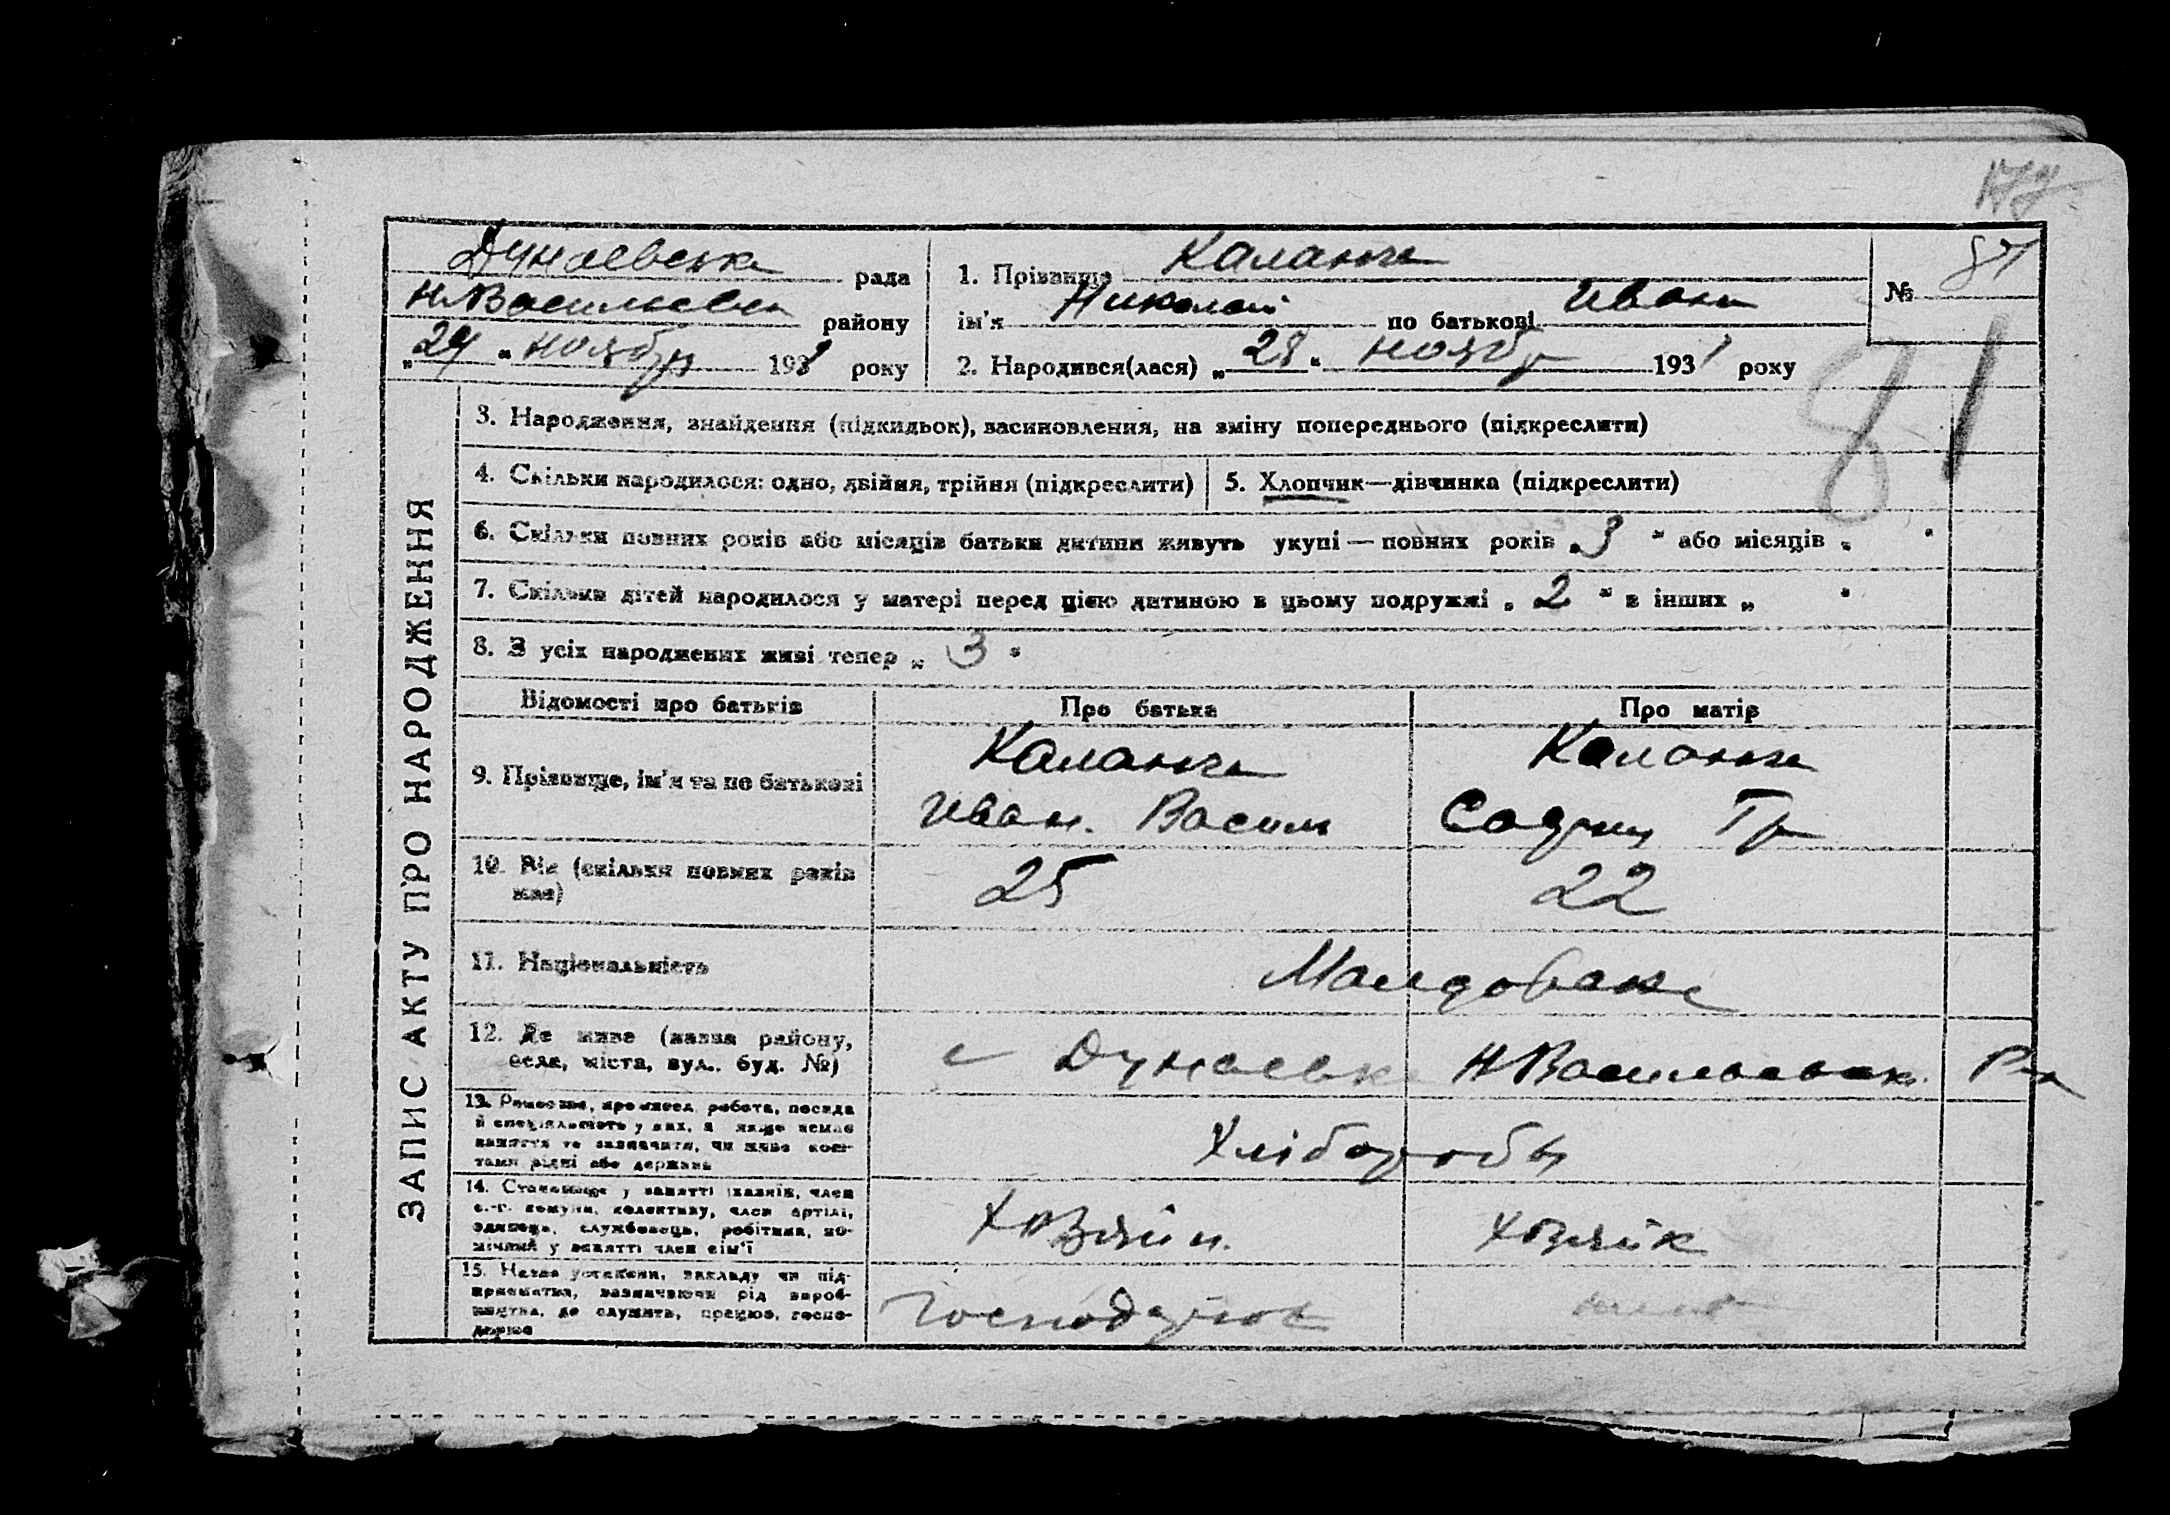 Дунаевська рада
Н-Васильевск району
„29" ноября 1931 року
1. Прізвище Каланжа
ім'я Николай по батькові Иван
2. Народився(лася) „28" ноябр 1931 року
№ 81
81
ЗАПИС АКТУ ПРО НАРОДЖЕННЯ
3. Народження, знайдення (підкидьок), васиновлення, на зміну попереднього (підкреслити)
4. Скільки народилося: одно, двійня, трійня (підкреслити)
5. Хлопчик—дівчинка (підкреслити)
6. Скільки повних років або місяців батьки дитини живуть укупі — повних років „3" або місяців „ "
7. Скільки дітей народилося у матері перед цією дитиною в цьому подружжі „2" в інших „ "
8. З усіх народжених живі тепер „3"
Відомості про батьків Про батька Про матір
9. Прізвище, ім'я та по батькові
Каланжа
Иван. Васил
Каланжа
Гр
10. Вік (скільки повних років
має)
25 22
11. Національність
Молдоване
12. Де живе (назва району,
села, міста, вул., буд. №)
с Дунаевка Н-Васильевск. Р-н
13. Ремество, промисел, робота, посада
й спеціяльність у них, а якщо немає
заняття то зазначити, чи живе кош-
тами рідні або держави
Хлібороби
14. Становище у занятті (хазяїн, член
с.-г. комуни, колективу, член артілі,
одинець, службовець, робітник, по-
мічний у занятті член сім'ї
Хозяйн. Хозяйк
15. Назва установи, закладу чи під-
приємства, зазначаючи рід вироб-
ництва, де служить, працює, госпо-
дарює